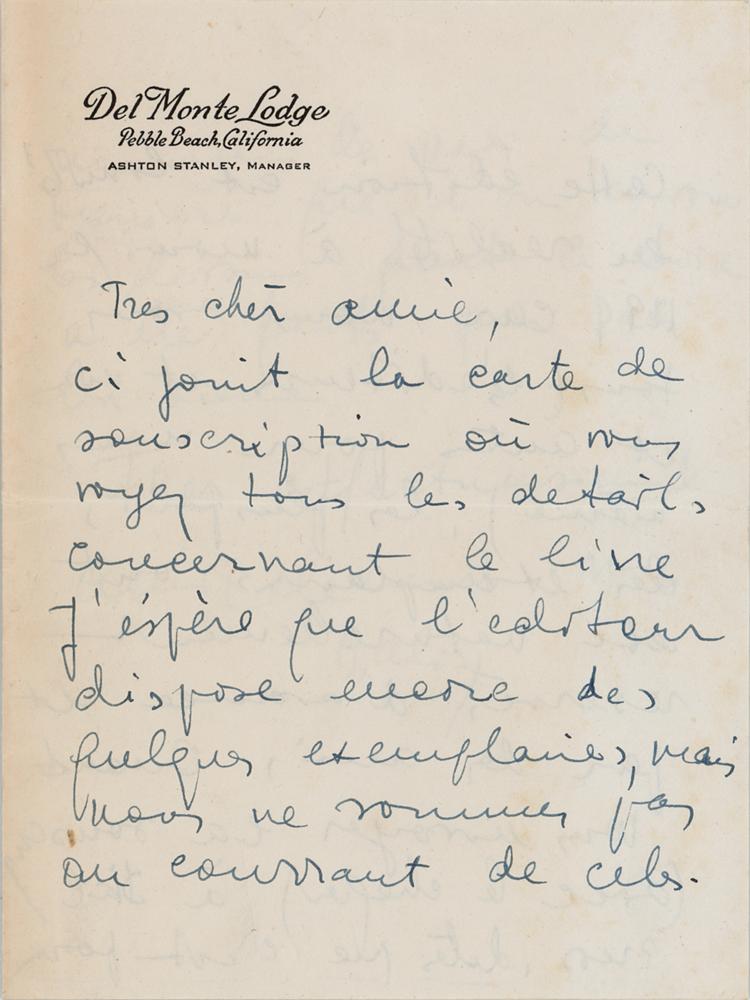 Del Monte Lodge
Pebble Beach, California
ASHTON STANLEY, MANAGER
Tres cher amie,
ci jouit la carte de
souscription où vous
voyez tous les details
concernant le livre
J'éspère que l'editeur
dispose encore des
quelques exemplaires, mais
nous ne sommes pas
au courrant de cela.